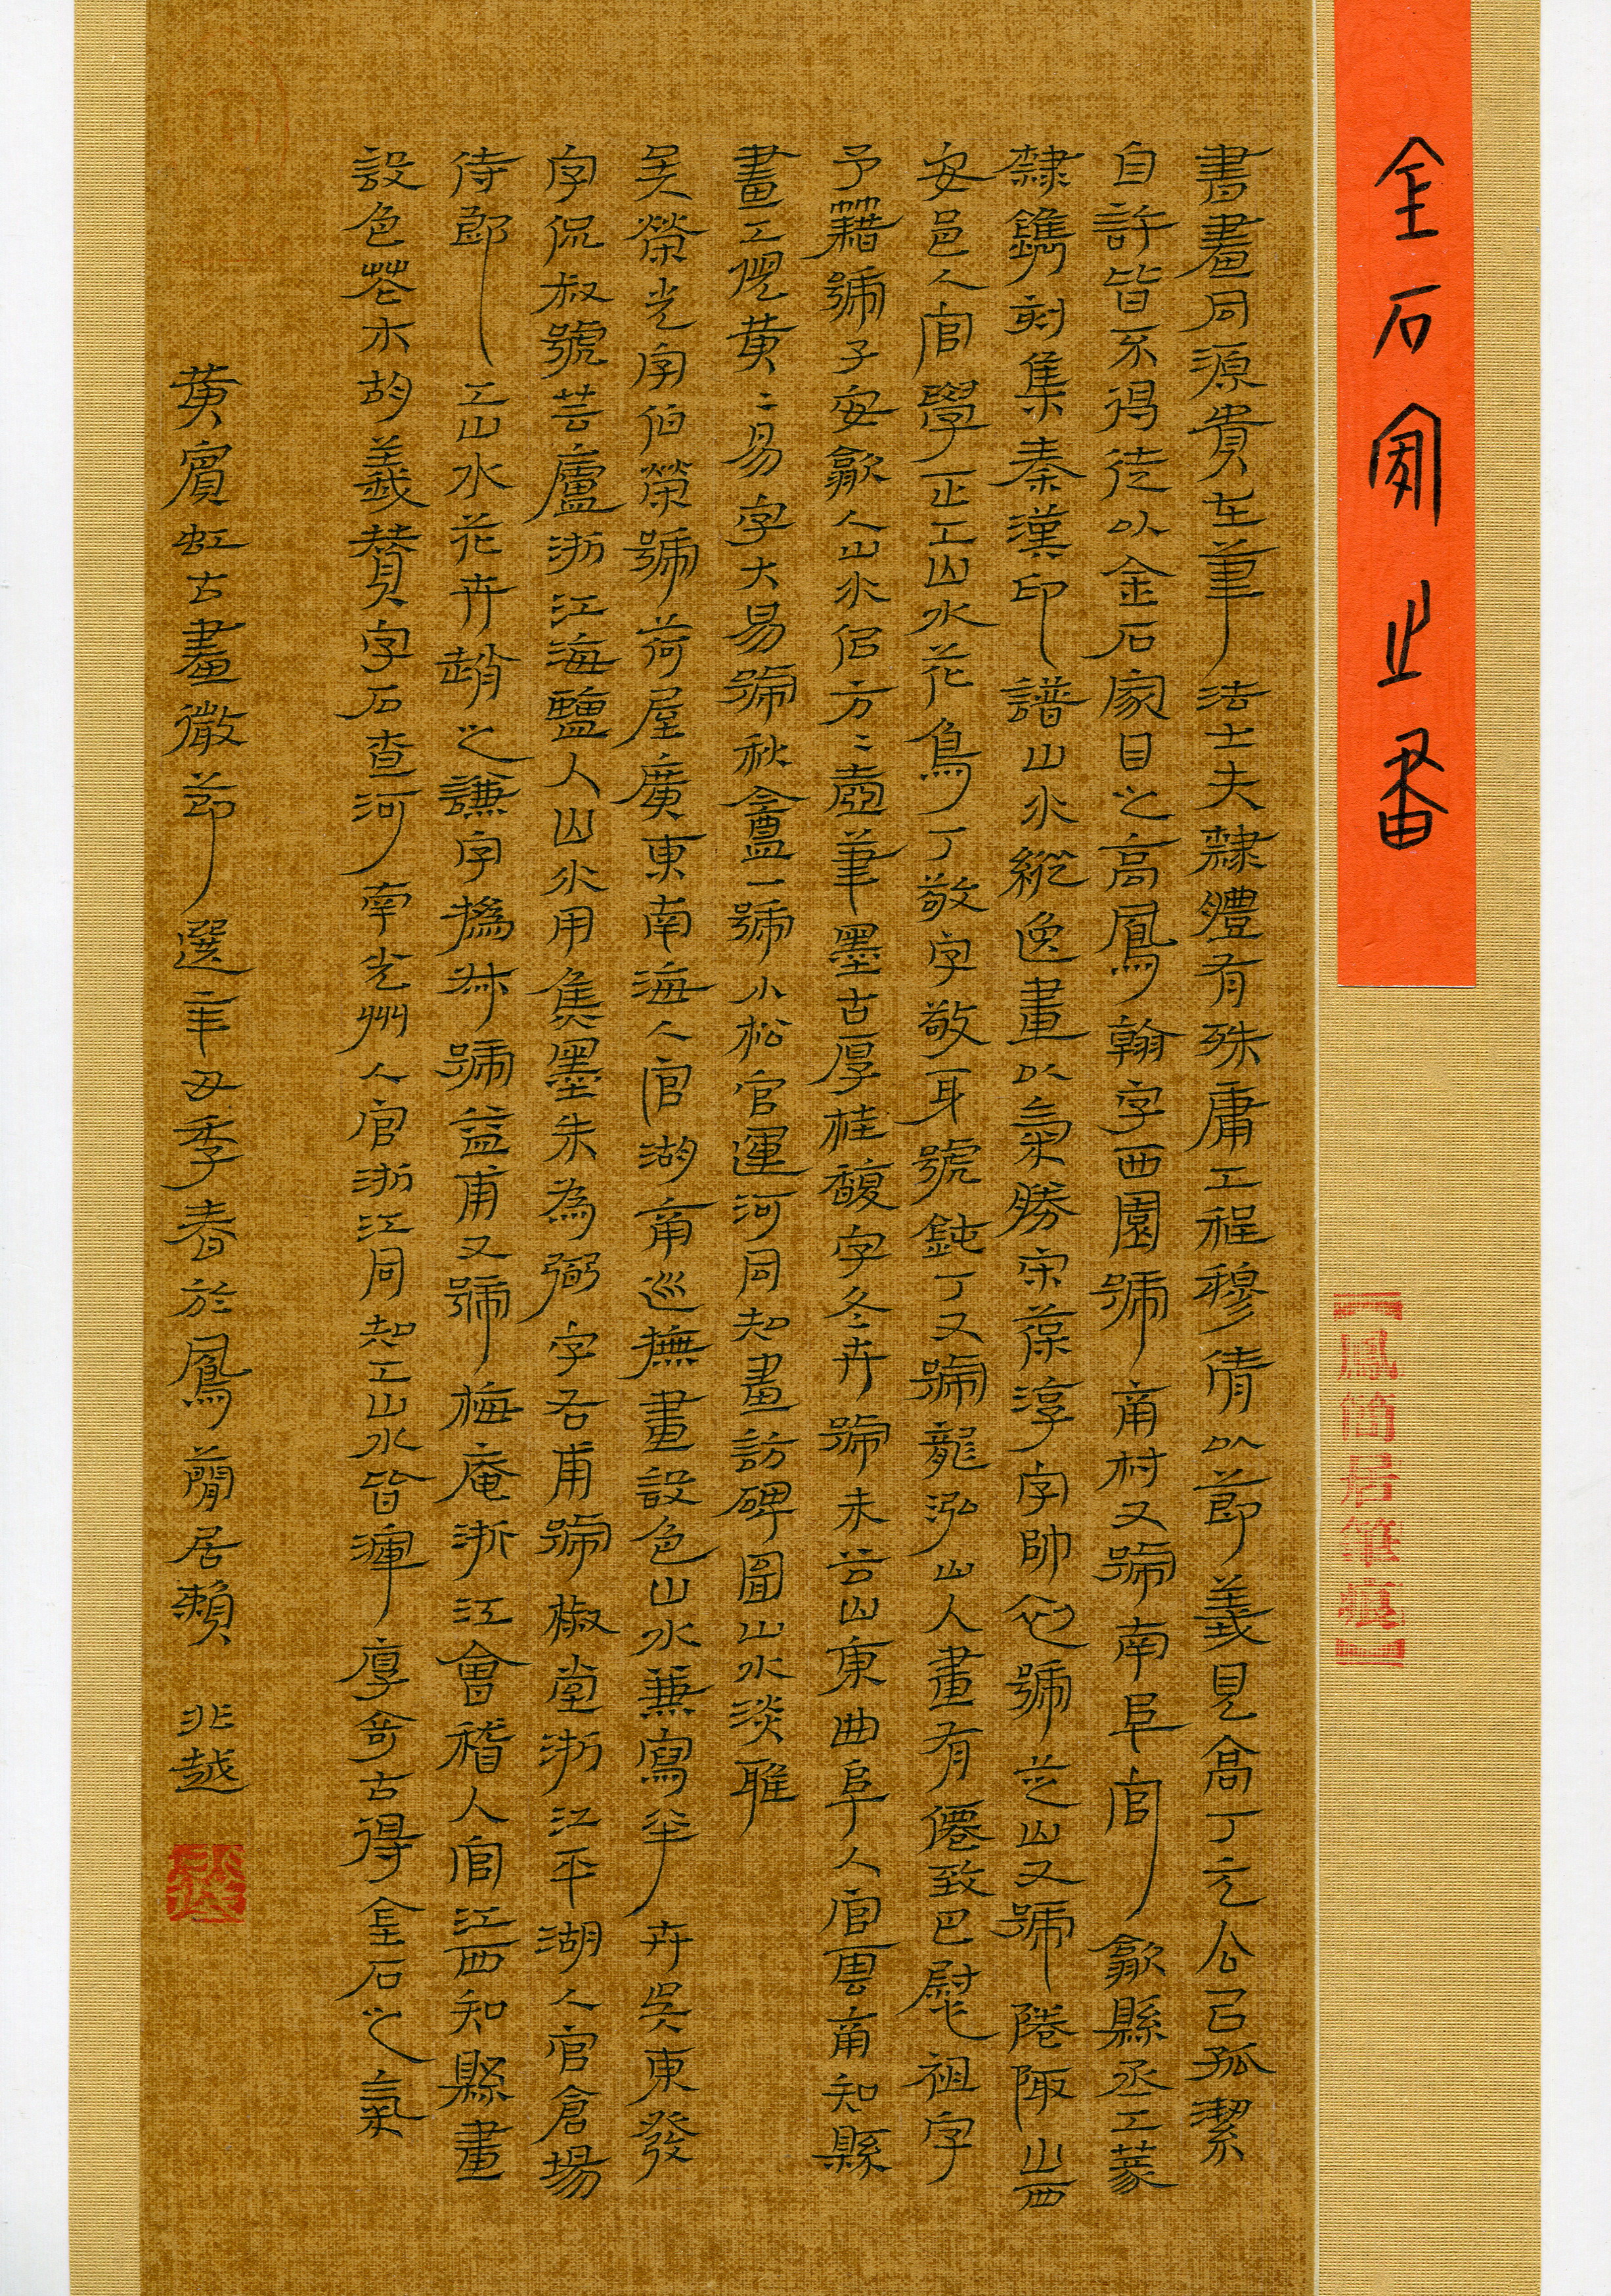 金石家之畫
鳳簡居筆痕
書畫同源貴在筆法士夫隸體有殊庸工程穆倩以節義見高丁元公已孤潔
自許皆不得徒以金石家目之高鳳翰字西園號南村又號南阜官歙縣丞工篆
隸鐫刻集秦漢印譜山水縱逸畫以氣勝宋葆淳字帥初號芝山又號陭陬山西
安邑人官學正工山水花鳥丁敬字敬身號鈍丁又號龍泓山人畫有僊致巴慰祖字
予籍號子安歙人山水侣方方壺筆墨古厚桂馥字冬卉號未谷山東曲阜人官雲南知縣
畫工倪黄黄易字大易號秋盦一號小松官運河同知畫訪碑圖山水淡雅
吳榮光字伯榮號荷屋廣東南海人官湖南巡撫畫設色山水兼寫華卉吳東發
字侃叔號芸廬浙江海鹽人山水用焦墨朱為弼字右甫號椒堂浙江平湖人官倉場
侍郎工山水花卉趙之謙字撝叔號益甫又號梅庵浙江會稽人官江西知縣畫
設色花木胡義贊字石查河南光州人官浙江同知工山水皆渾厚奇古得金石之氣
黄賓虹古畫微節選辛丑季春於鳳簡居賴 兆越